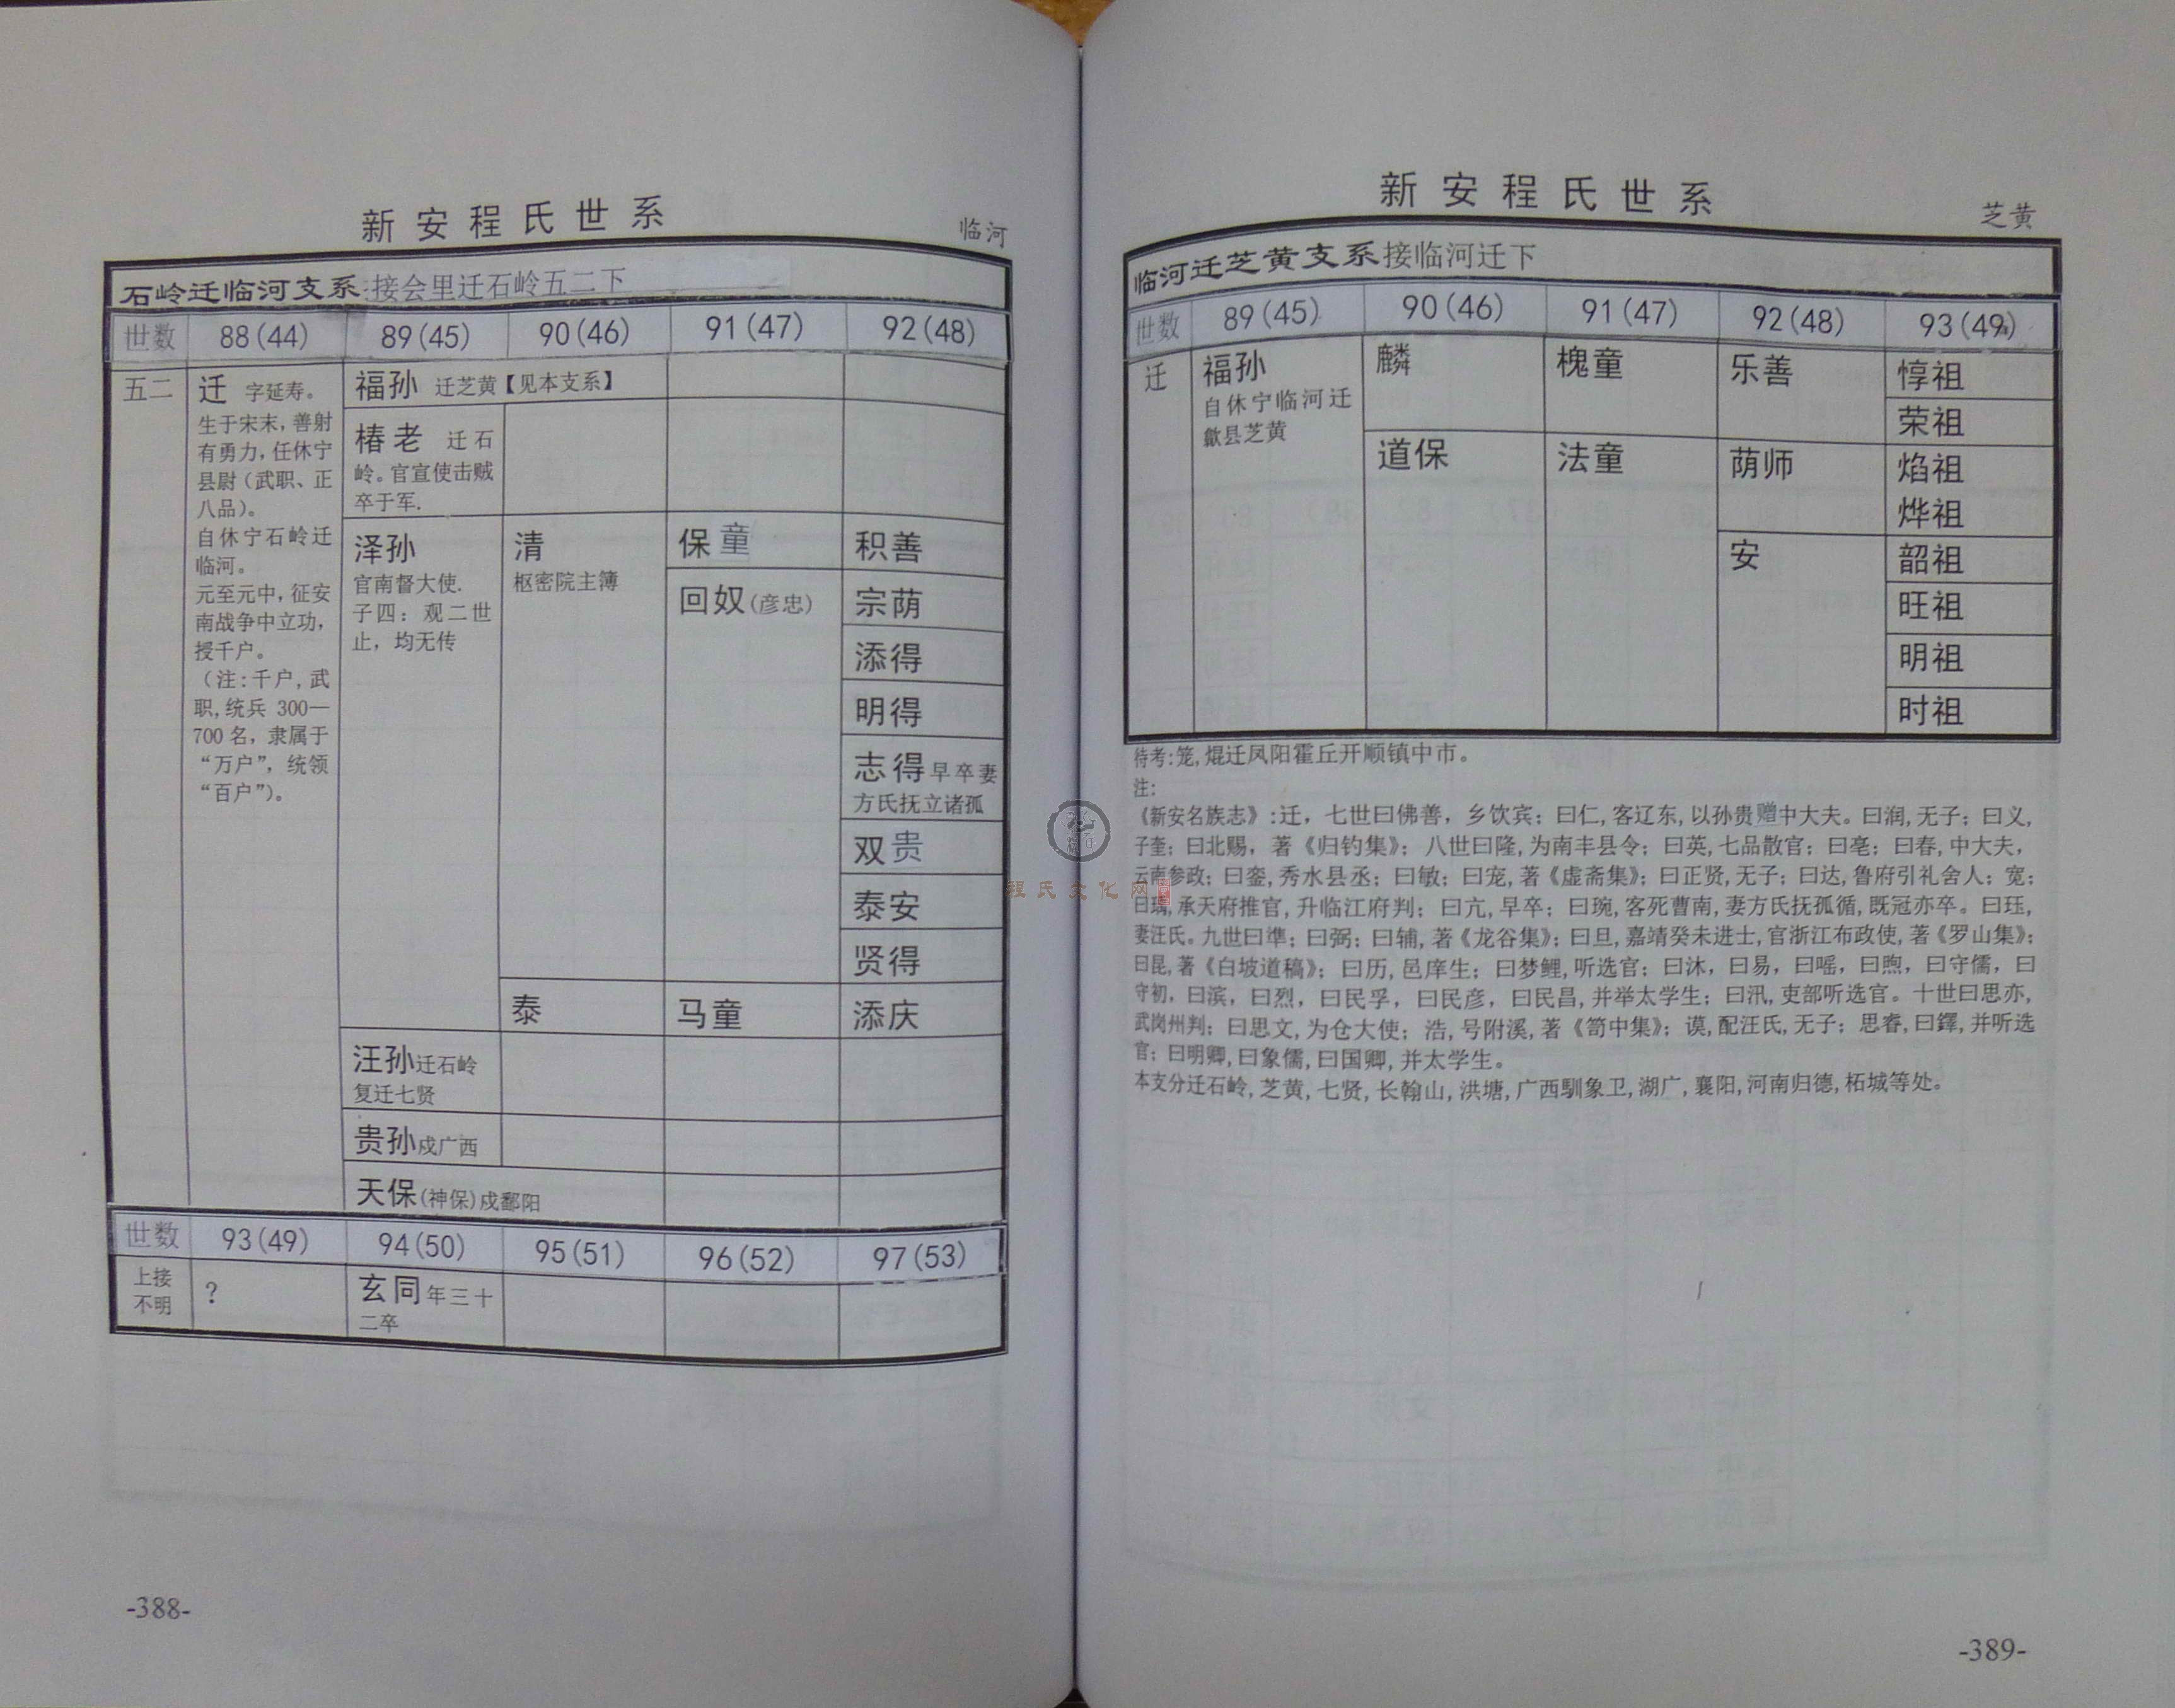 新安程氏世系
临河
石岭迁临河支系:接会里迁石岭五二下
世数 88(44) 89(45) 90(46) 91(47) 92(48)
五二
迁 字延寿。
生于宋末,善射
有勇力,任休宁
县尉(武职、正
八品)。
自休宁石岭迁
临河。
元至元中,征安
南战争中立功,
授千户。
(注:千户,武
职,统兵 300—
700名,隶属于
“万户”,统领
“百户”)。
福孙 迁芝黄【见本支系】
椿老 迁石
岭。官宣使击贼
卒于军.
泽孙
官南督大使.
子四:观二世
止,均无传
清
枢密院主簿
保童
积善
回奴(彦忠)
宗荫
添得
明得
志得早卒妻
方氏抚立诸孤
双贵
泰安
贤得
泰
马童
添庆
汪孙迁石岭
复迁七贤
贵孙戍广西
天保(神保)戍鄱阳
世数 93(49) 94(50) 95(51) 96(52) 97(53)
上接
不明
?
玄同年三十
二卒
-388-
新安程氏世系
芝黄
临河迁芝黄支系接临河迁下
世数 89(45) 90(46) 91(47) 92(48) 93(49)
迁
福孙
自休宁临河迁
歙县芝黄
麟
槐童
乐善
惇祖
荣祖
道保
法童
荫师
焰祖
烨祖
安
韶祖
旺祖
明祖
时祖
待考:笼,焜迁凤阳霍丘开顺镇中市。
注:
《新安名族志》:迁,七世曰佛善,乡饮宾;曰仁,客辽东,以孙贵赠中大夫。曰润,无子;曰义,
子奎;曰北赐,著《归钓集》;八世曰隆,为南丰县令;曰英,七品散官;曰亳;曰春,中大夫,
云南参政;曰銮,秀水县丞;曰敏;曰宠,著《虚斋集》;曰正贤,无子;曰达,鲁府引礼舍人;宽;
曰瑀,承天府推官,升临江府判;曰亢,早卒;曰琬,客死曹南,妻方氏抚孤循,既冠亦卒。曰珏,
妻汪氏。九世曰準;曰弼;曰辅,著《龙谷集》;曰旦,嘉靖癸未进士,官浙江布政使,著《罗山集》;
曰昆,著《白坡道稿》;曰历,邑庠生;曰梦鲤,听选官;曰沐,曰易,曰嗂,曰煦,曰守儒,曰
守初,曰滨,曰烈,曰民孚,曰民彦,曰民昌,并举太学生;曰汛,吏部听选官。十世曰思亦,
武岗州判;曰思文,为仓大使;浩,号附溪,著《笥中集》;谟,配汪氏,无子;思睿,曰鐸,并听选
官;曰明卿,曰象儒,曰国卿,并太学生。
本支分迁石岭,芝黄,七贤,长翰山,洪塘,广西馴象卫,湖广,襄阳,河南归德,柘城等处。
-389-
程氏文化网